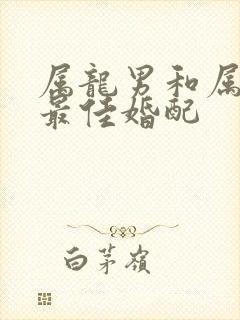 属龍男和属
最佳婚配
白茅嶺